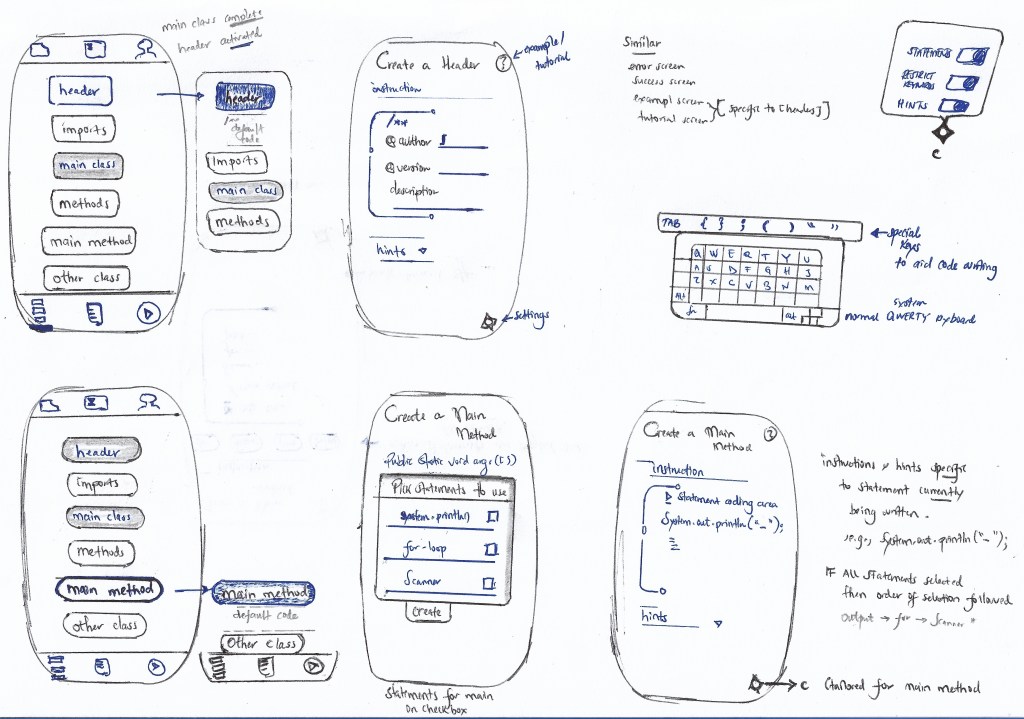 main class complete
header activated
header
imports
main class
methods
main method
other class
header
default
code
Imports
main class
methods
Create a Header ?
example/
tutorial
instruction
/**
@author
@version
description
hints
settings
Similar
error screen
success screen
exampl screen
tutorial screen
[specific to [header]]
STATEMENTS
RESTRICT
KEYWORDS
HINTS
c
TAB { } ; ( ) " "
Q W E R T Y U
A S D F G H J
Z X C V B N M
Alt
fn alt
special
keys
to aid code writing
system
normal QWERTY keyboard
header
imports
main class
methods
main method
Other class
main method
default code
Other class
Create a Main
Method
Public static void args([S])
Pick statements to use
system.println()
for-loop
Scanner
Create
statements for main
on checkbox
Create a Main ?
Method
instruction
Statement coding area
System.out.println("_");
hints
c tailored for main method
instructions & hints specific
to statement currently
being written.
e.g., System.out.println("_");
IF All statements selected
then order of selection followed
output → for → Scanner *